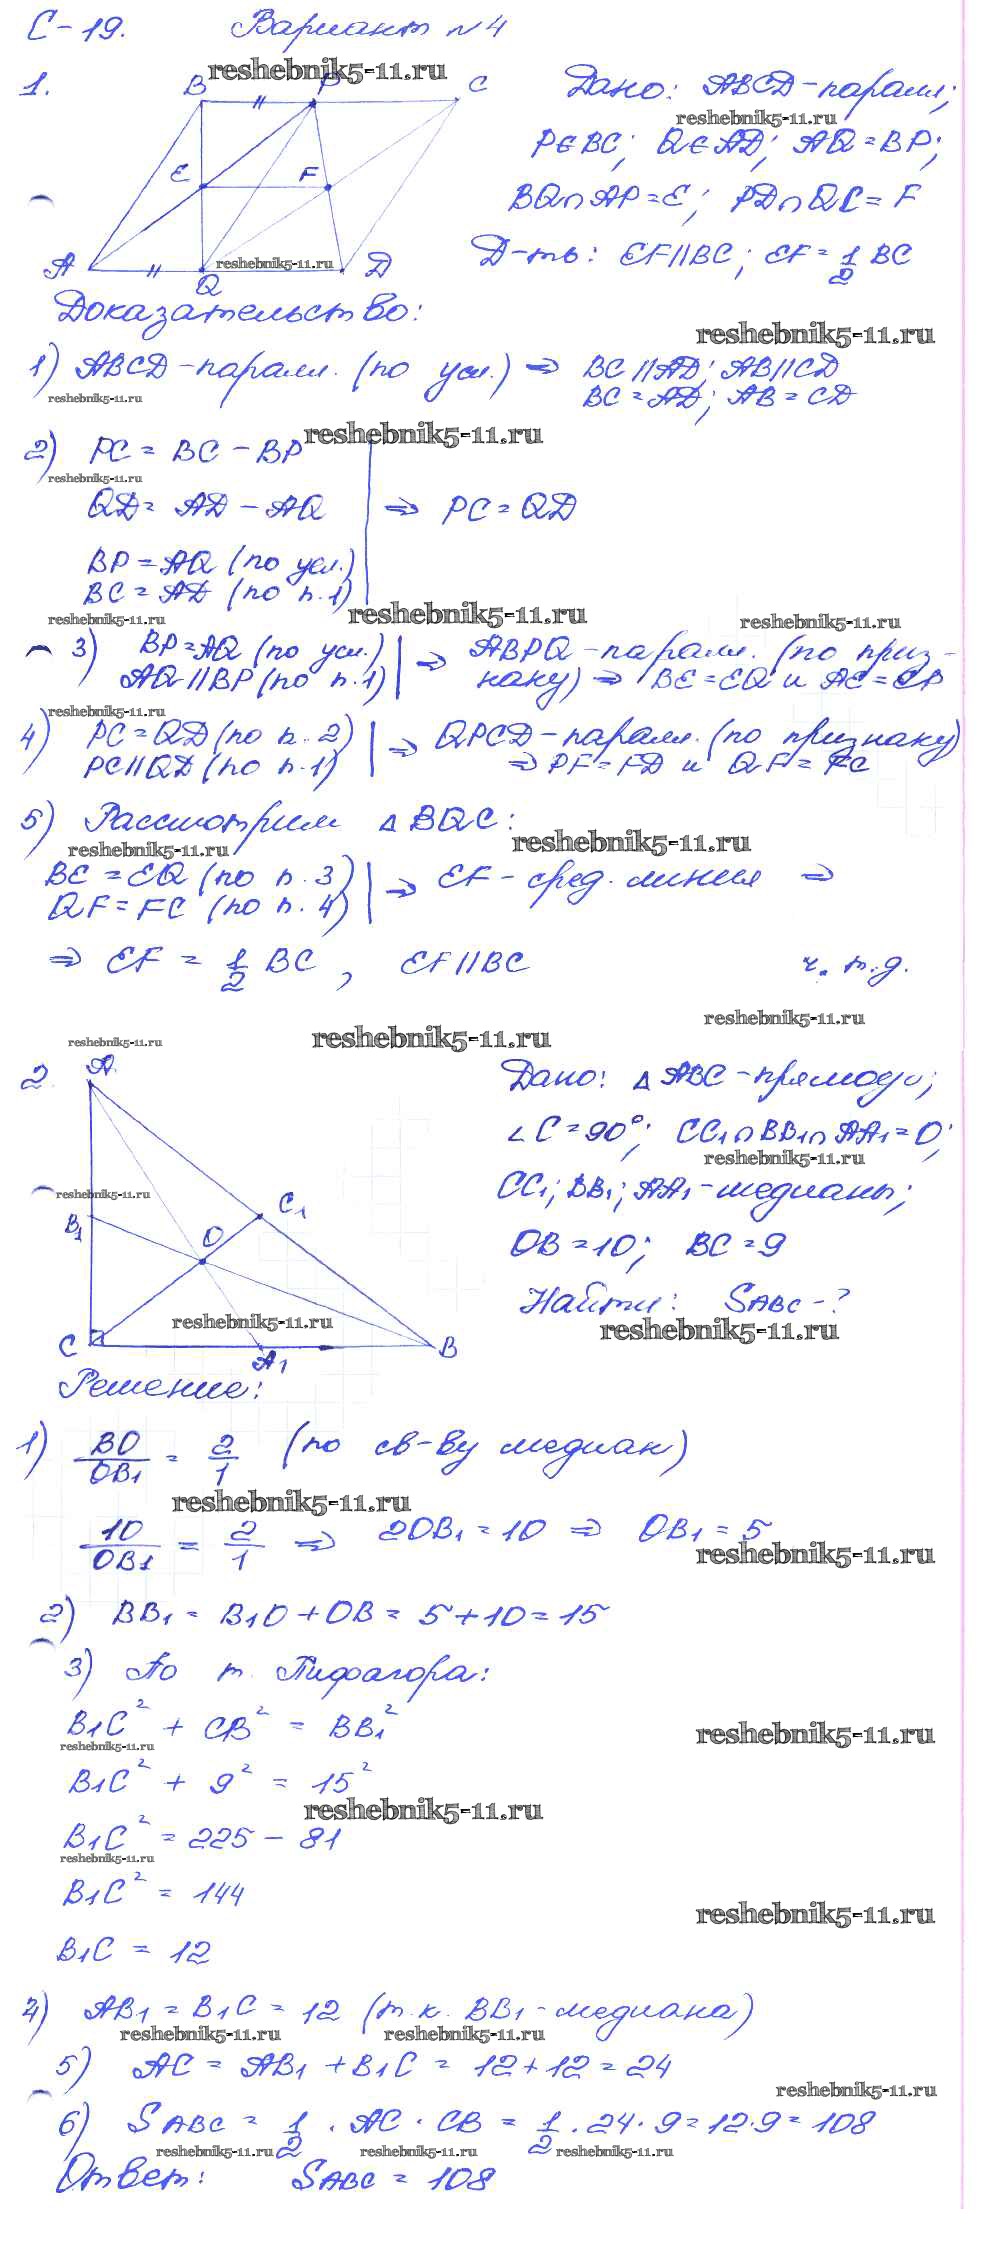 С-19. Вариант №4
reshebnik5-11.ru
1.
B P C
E F
A Q D
reshebnik5-11.ru
Дано: ABCD-парал.;
reshebnik5-11.ru
P∈BC; Q∈AD; AQ=BP;
BQ∩AP=E; PD∩QC=F
Д-ть: EF||BC; EF=1/2 BC
Доказательство:
reshebnik5-11.ru
1) ABCD-парал. (по усл.) ⇒ BC||AD; AB||CD
BC=AD; AB=CD
reshebnik5-11.ru
reshebnik5-11.ru
2) PC = BC - BP
reshebnik5-11.ru
QD = AD - AQ ⇒ PC=QD
BP=AQ (по усл.)
BC=AD (по п.1)
reshebnik5-11.ru reshebnik5-11.ru reshebnik5-11.ru
3) BP=AQ (по усл.) | ⇒ ABPQ-парал. (по приз-
AQ||BP (по п.1) | наку) ⇒ BE=EQ и AE=EP
reshebnik5-11.ru
4) PC=QD (по п.2) | ⇒ QPCD-парал. (по признаку)
PC||QD (по п.1) | ⇒ PF=FD и QF=FC
5) Рассмотрим △BQC:
reshebnik5-11.ru reshebnik5-11.ru
BE=EQ (по п.3) | ⇒ EF-сред. линия ⇒
QF=FC (по п.4) |
⇒ EF = 1/2 BC, EF||BC ч.т.д.
reshebnik5-11.ru
reshebnik5-11.ru reshebnik5-11.ru
2.
A
reshebnik5-11.ru
B₁ O C₁
reshebnik5-11.ru
C A₁ B
Дано: △ABC-прямоуг;
∠C=90°; CC₁∩BB₁∩AA₁=O;
reshebnik5-11.ru
CC₁; BB₁; AA₁-медианы;
OB=10; BC=9
Найти: SABC-?
reshebnik5-11.ru
Решение:
1) BO/OB₁ = 2/1 (по св-ву медиан)
reshebnik5-11.ru
10/OB₁ = 2/1 ⇒ 2OB₁=10 ⇒ OB₁=5
reshebnik5-11.ru
2) BB₁ = B₁O+OB = 5+10=15
3) По т. Пифагора:
B₁C² + CB² = BB₁²
reshebnik5-11.ru reshebnik5-11.ru
B₁C² + 9² = 15²
reshebnik5-11.ru
B₁C² = 225 - 81
reshebnik5-11.ru
B₁C² = 144
reshebnik5-11.ru
B₁C = 12
4) AB₁ = B₁C = 12 (т.к. BB₁-медиана)
reshebnik5-11.ru reshebnik5-11.ru
5) AC = AB₁+B₁C = 12+12=24
reshebnik5-11.ru
6) SABC = 1/2 · AC · CB = 1/2 · 24 · 9 = 12·9 = 108
reshebnik5-11.ru reshebnik5-11.ru reshebnik5-11.ru
Ответ: SABC = 108